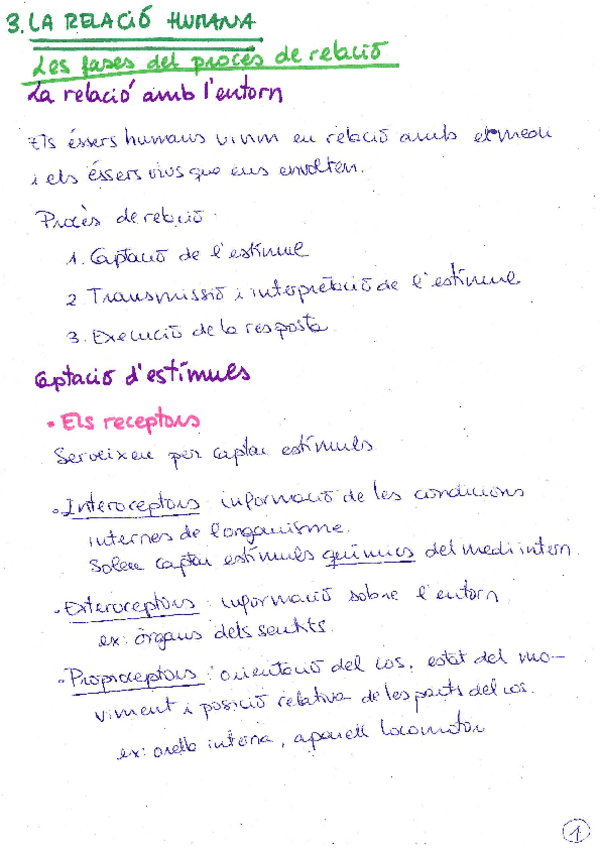 3. LA RELACIÓ HUMANA
Les fases del procés de relació
La relació amb l'entorn
Els éssers humans vivim en relació amb el medi
i els éssers vius que ens envolten.
Procès de relació:
1. Captació de l'estímul
2. Transmissió i interpretació de l'estímul
3. Execució de la resposta
Captació d'estímuls
• Els receptors
Serveixen per captar estímuls
• Interoceptors: informació de les condicions
internes de l'organisme.
Solen captar estímuls químics del medi intern.
• Exteroceptors: informació sobre l'entorn
ex: òrgans dels sentits.
• Propioceptors: orientació del cos, estat del mo-
viment i posició relativa de les parts del cos.
ex: orella interna, aparell locomotor
1